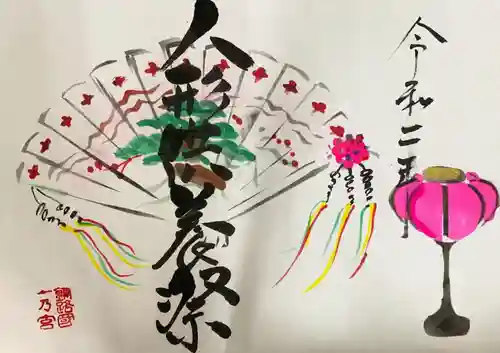 令和二年
人形供養祭
釧路國
一乃宮